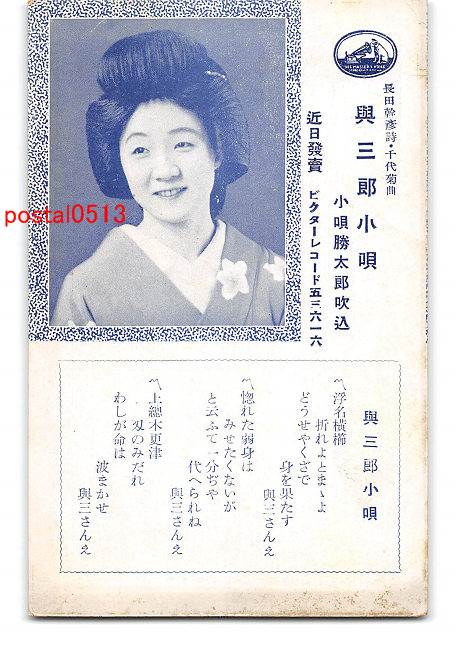 HIS MASTER'S VOICE
長田幹彥詩・千代菊曲
與三郎小唄
小唄勝太郎吹込
近日發賣 ビクターレコード五三六一六
postal0513
與三郎小唄
〽浮名橫櫛
折れよとまゝよ
どうせやくざで
身を果たす
與三さんえ
〽惚れた弱身は
みせたくないが
と云ふて一分ぢや
代へられね
與三さんえ
〽上總木更津
刄のみだれ
わしが命は
波まかせ
與三さんえ